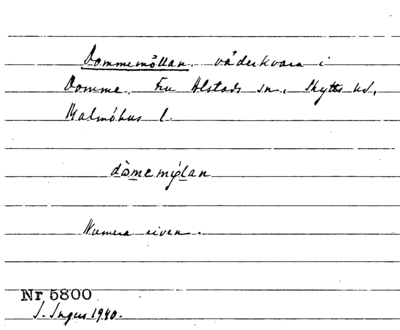 Dommemöllan. väderkvarn i
Domme. Fru Alstads sn., Skytts hd,
Malmöhus l.
dòmemy̍lan
Numera riven.
Nr 5800
J. Ingers 1940.